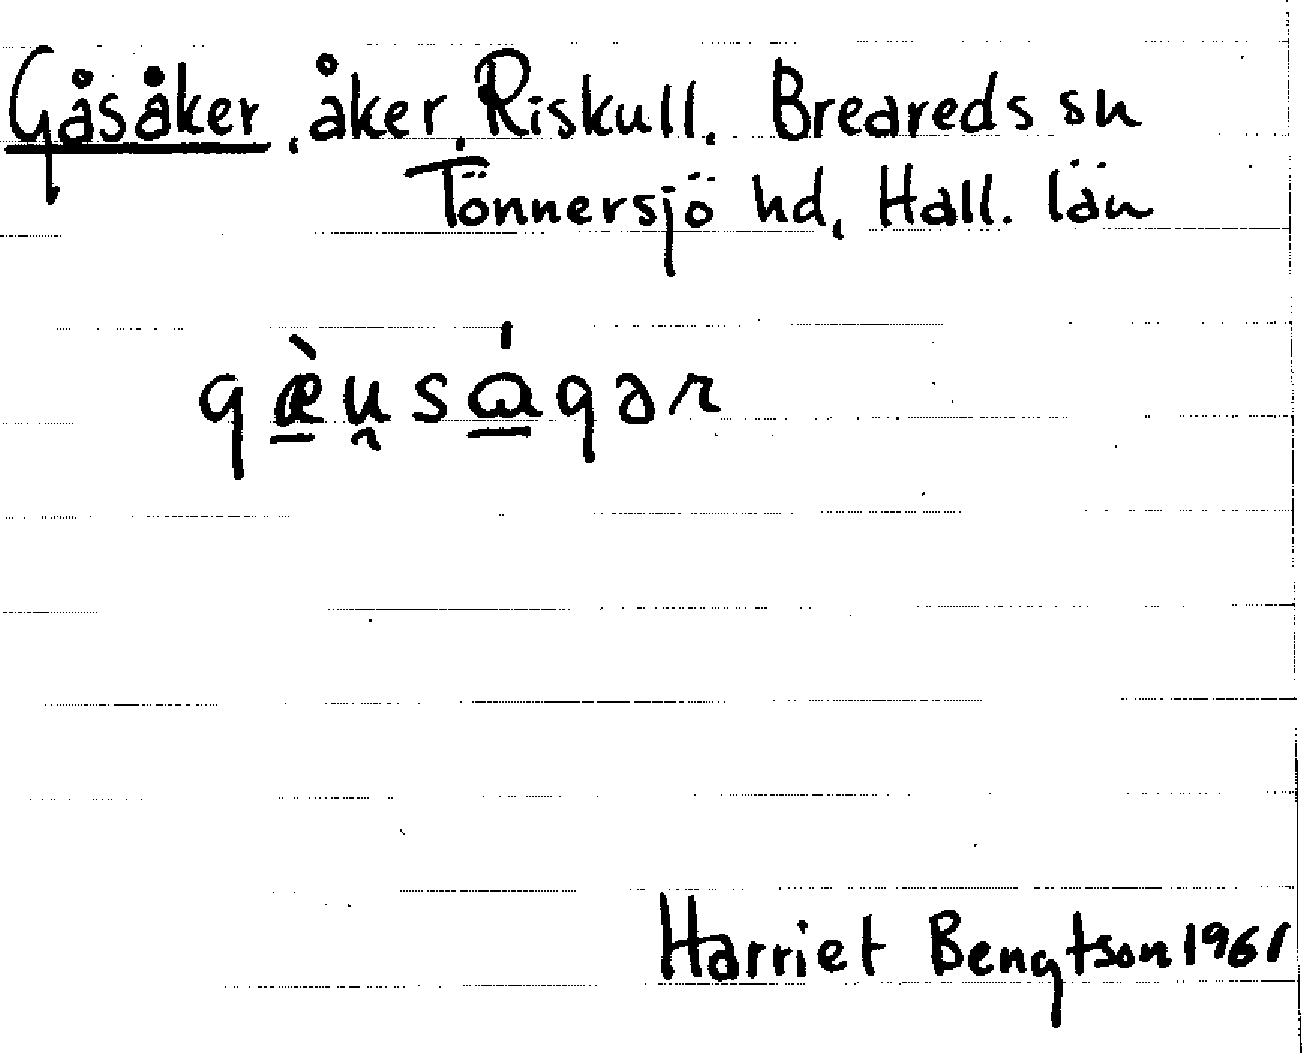 Gåsåker, åker, Riskull, Breareds sn
Tönnersjö hd, Hall. län
gæ̱̀u̯sά̱gər
Harriet Bengtson 1961